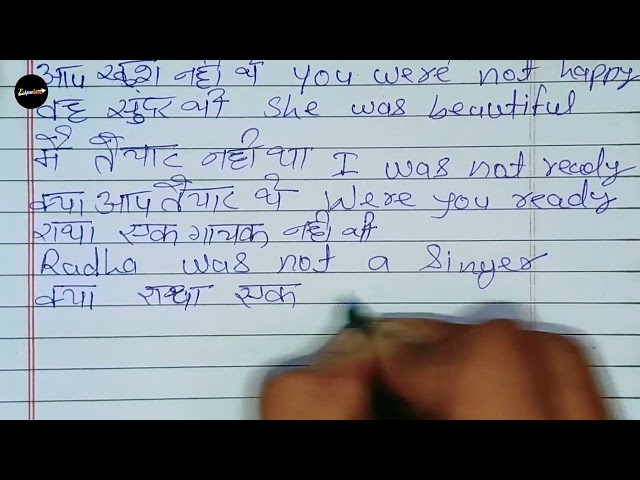 आप खुश नहीं थे You were not happy
वह सुंदर थी She was beautiful
मैं तैयार नहीं था I was not ready
क्या आप तैयार थे Were you ready
राधा एक गायक नहीं थी
Radha was not a Singer
क्या राधा एक